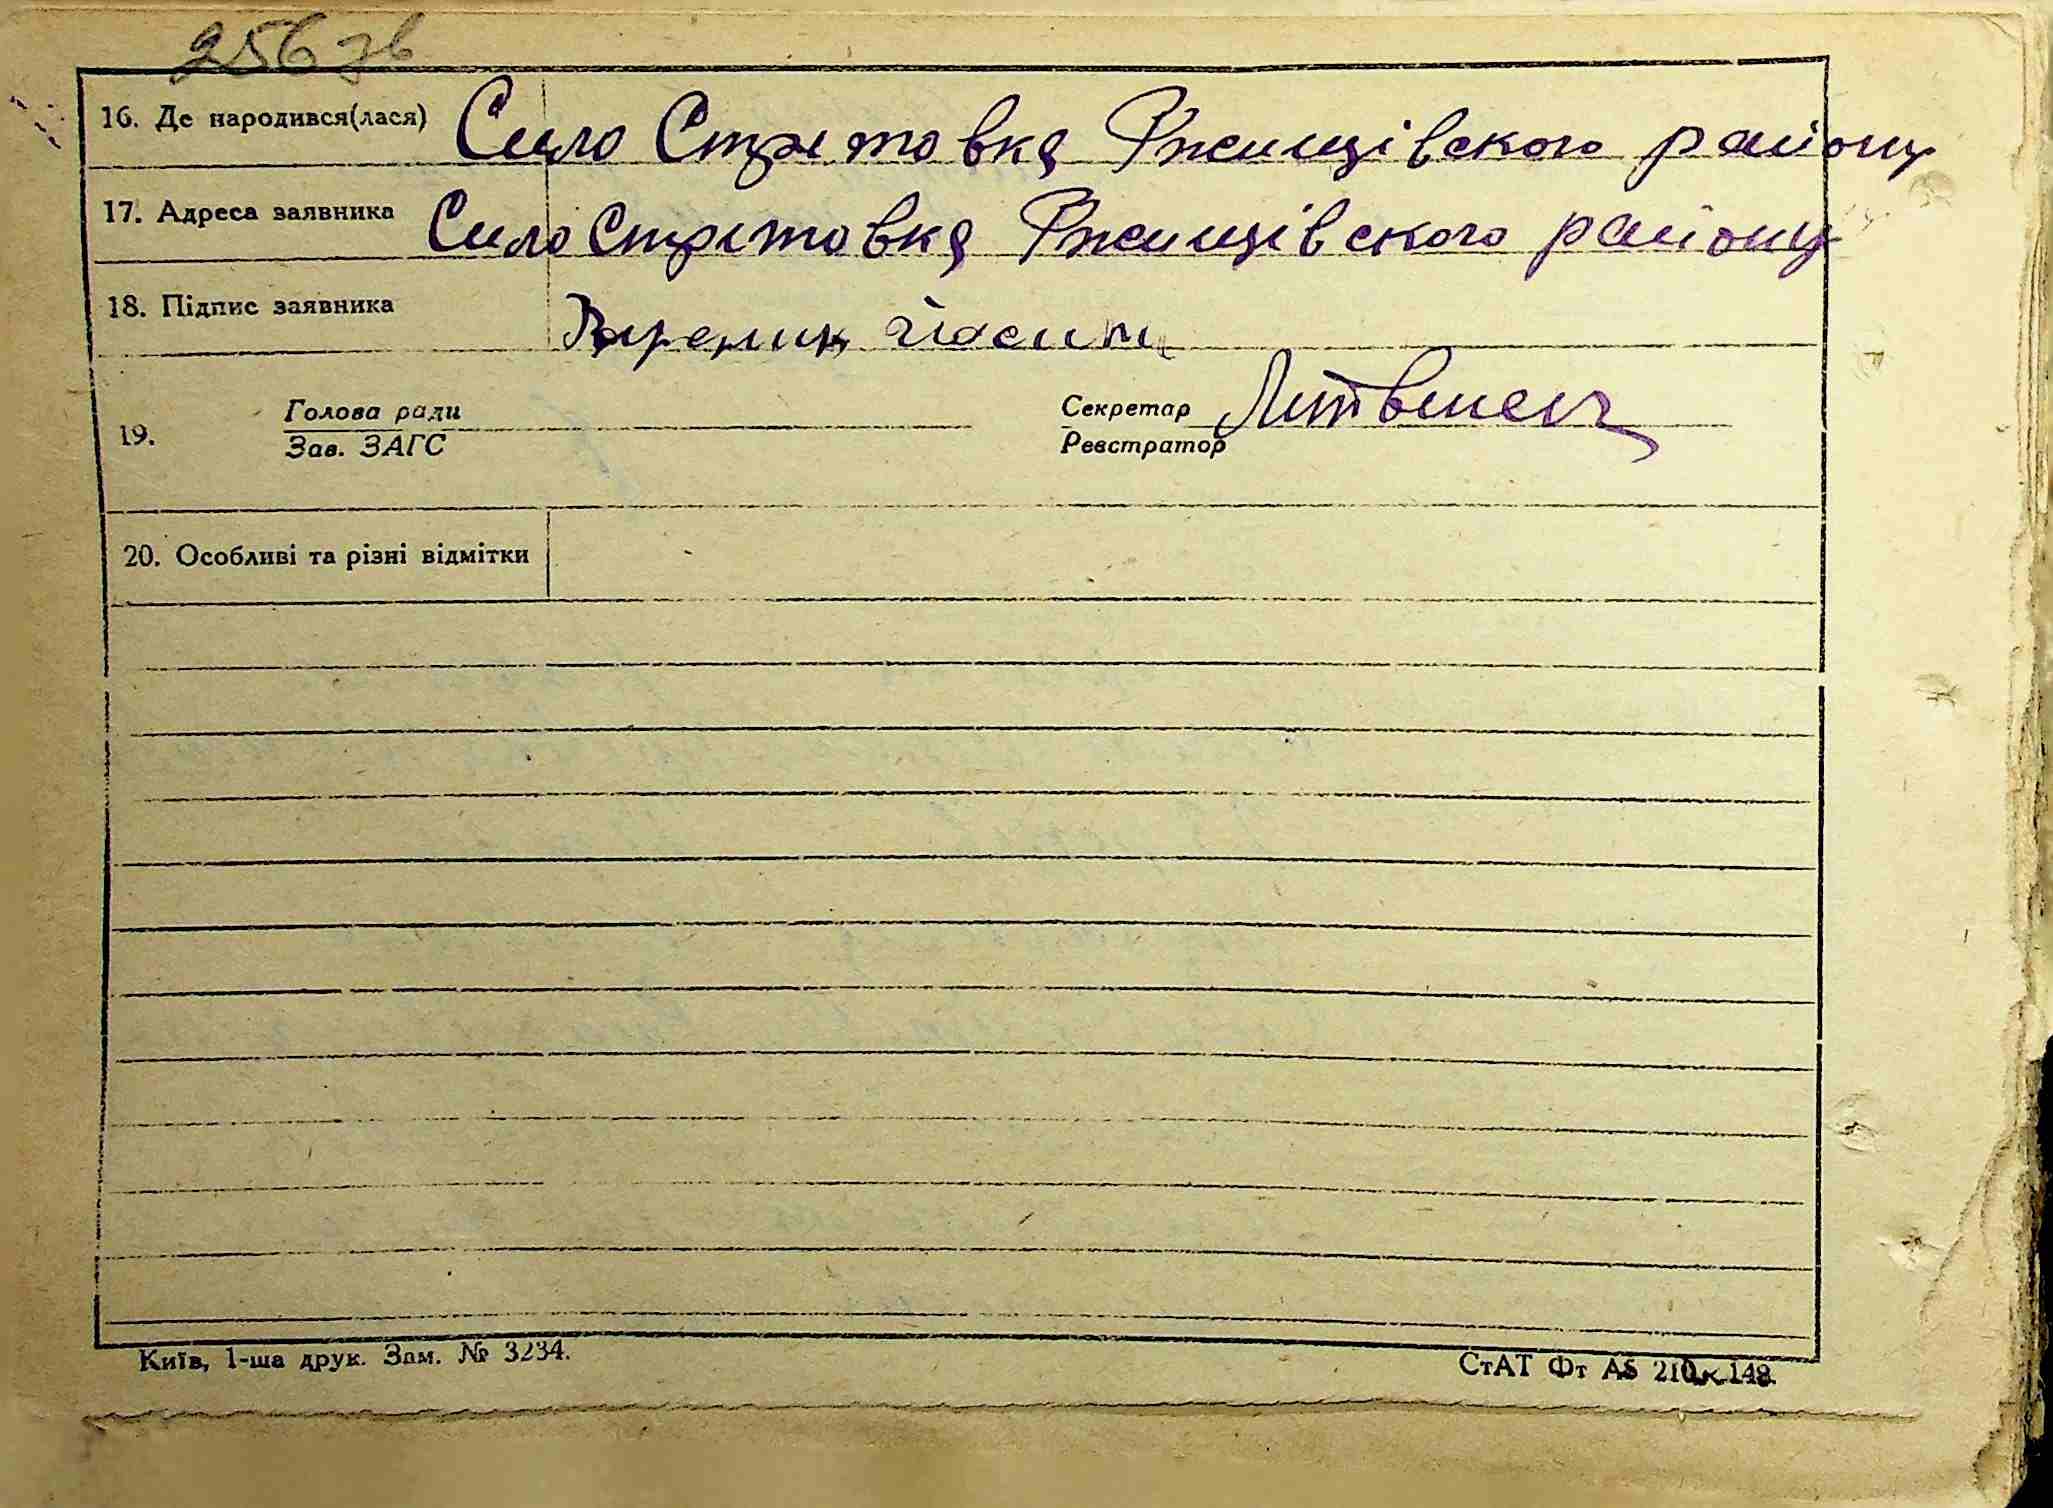 256 зв
16. Де народився(лася) Село Стретовка Ржищівского району
17. Адреса заявника Село Стретовка Ржищівского району
18. Підпис заявника
19. Голова ради Секретар Литвинец
Зав. ЗАГС Реєстратор
20. Особливі та різні відмітки
Київ, 1-ша друк. Зам. № 3234. СтАТ Фт А5 210×148.